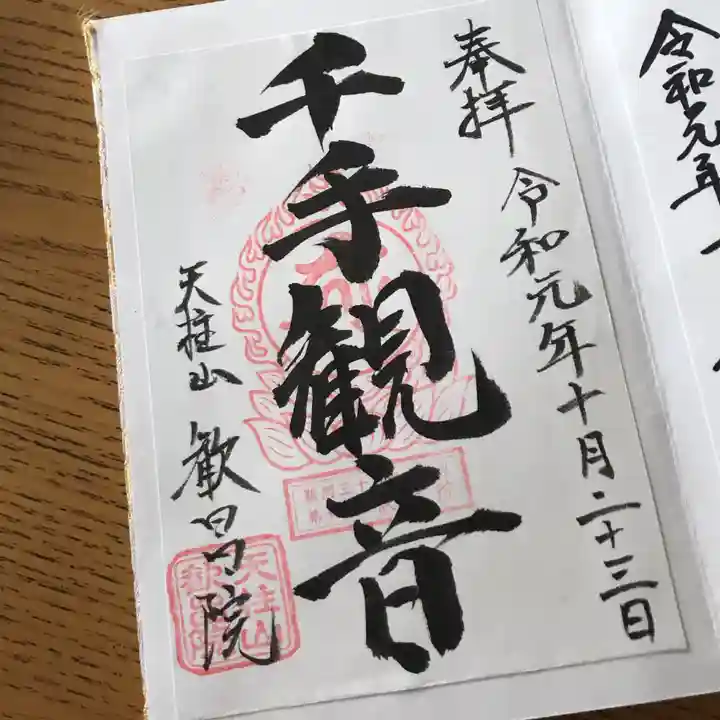 奉拝
令和元年十月二十三日
千手観音
天柱山
歓昌院
令和元年